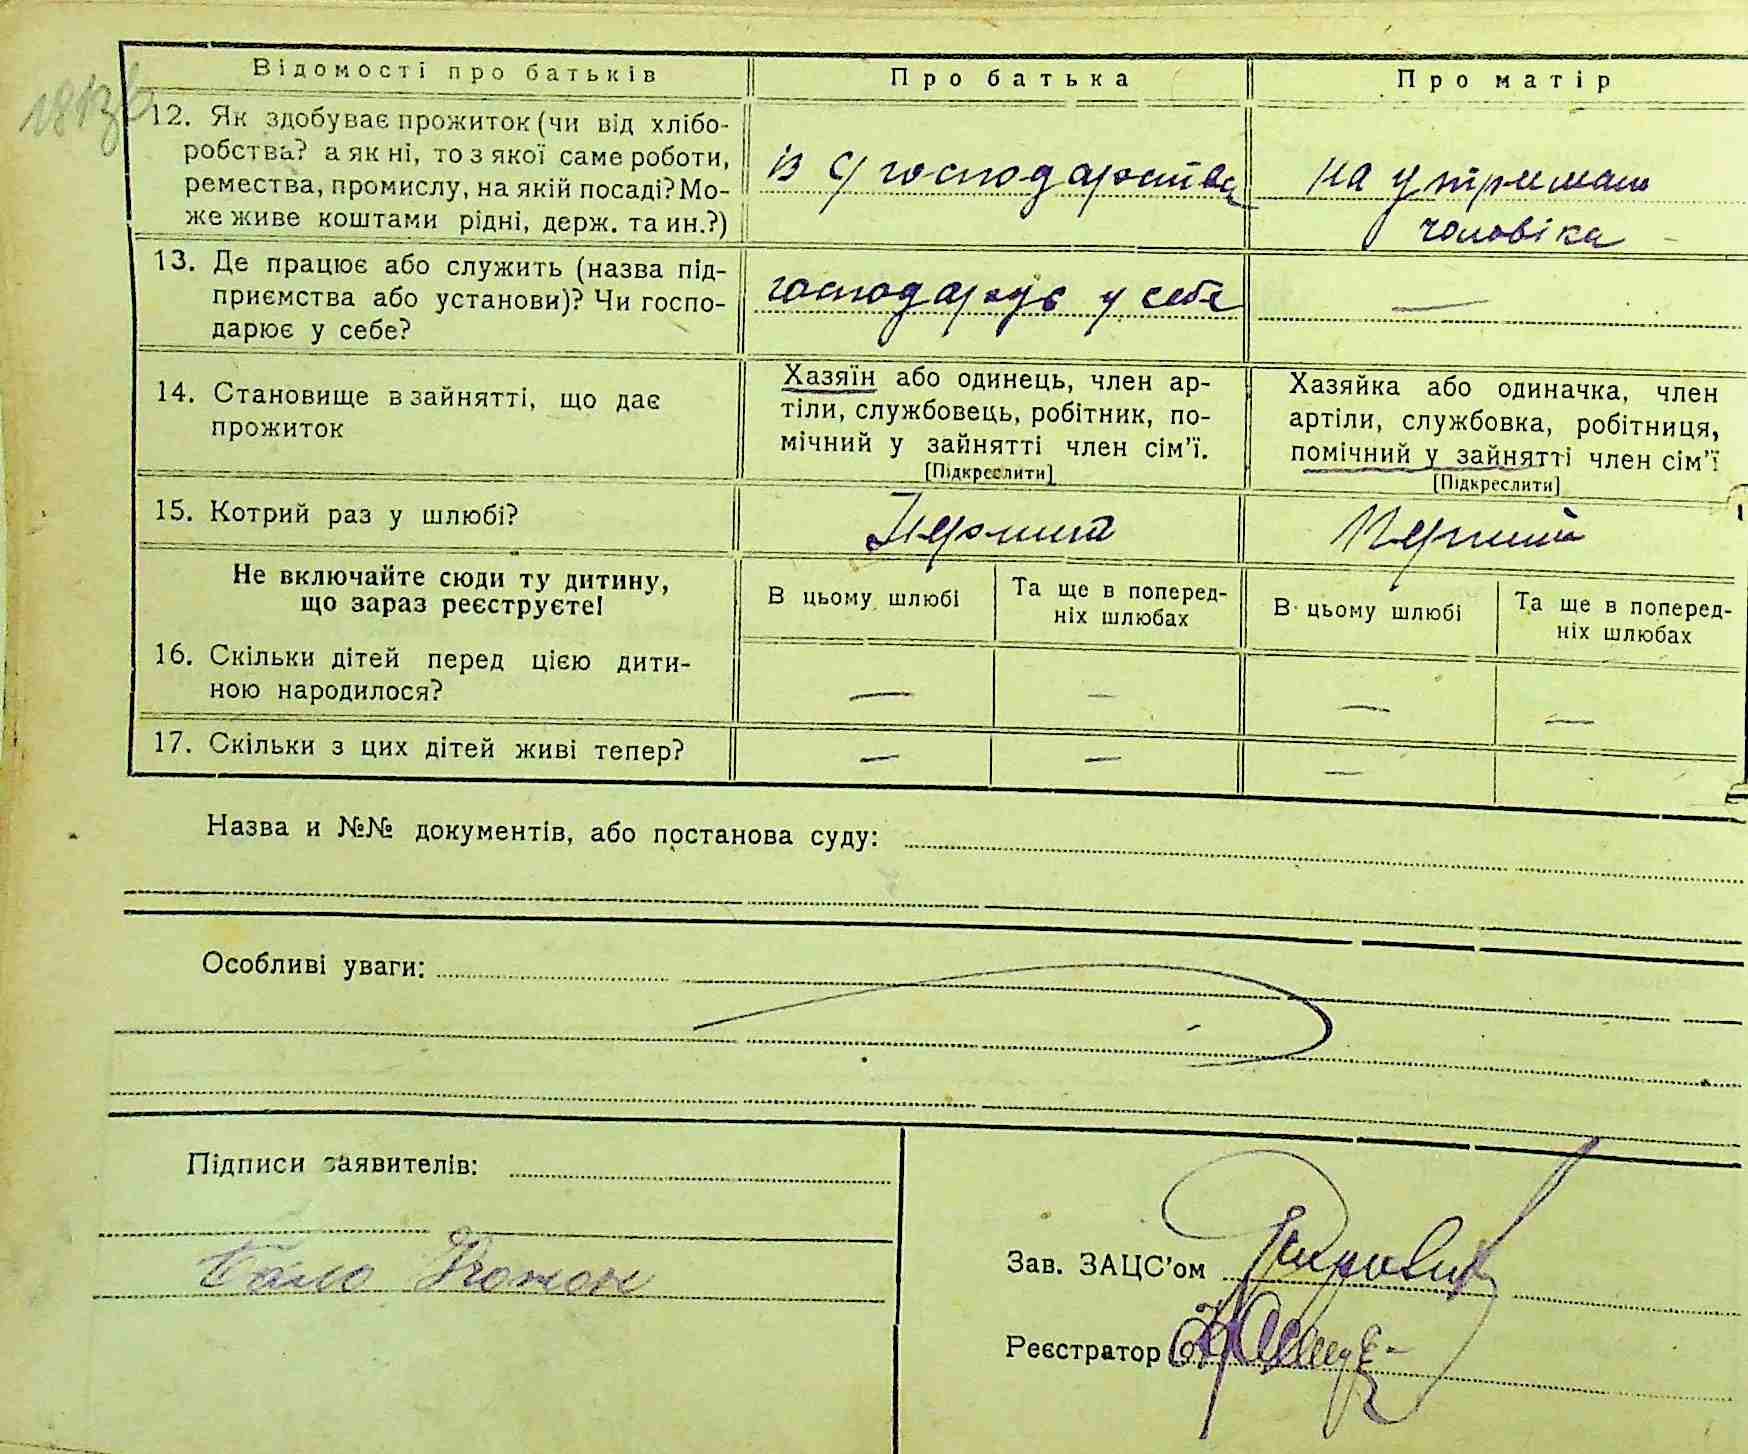 Відомості про батьків
Про батька
Про матір
12. Як здобуває прожиток (чи від хлібо-
робства? а як ні, то з якої саме роботи,
ремества, промислу, на якій посаді? Мо-
же живе коштами рідні, держ. та ин.?)
із с/господарства
на утриман
чоловіка
13. Де працює або служить (назва під-
приємства або установи)? Чи госпо-
дарює у себе?
господарює у себе
—
14. Становище в зайнятті, що дає
прожиток
Хазяїн або одинець, член ар-
тіли, службовець, робітник, по-
мічний у зайнятті член сім'ї.
[Підкреслити]
Хазяйка або одиначка, член
артіли, службовка, робітниця,
помічний у зайнятті член сім'ї
[Підкреслити]
15. Котрий раз у шлюбі?
Перший
Перший
Не включайте сюди ту дитину,
що зараз реєструєте!
В цьому шлюбі
Та ще в поперед-
ніх шлюбах
В цьому шлюбі
Та ще в поперед-
ніх шлюбах
16. Скільки дітей перед цією дити-
ною народилося?
— — — —
17. Скільки з цих дітей живі тепер?
— — —
Назва и №№ документів, або постанова суду:
Особливі уваги:
Підписи заявителів:
Зав. ЗАЦС'ом
Реєстратор